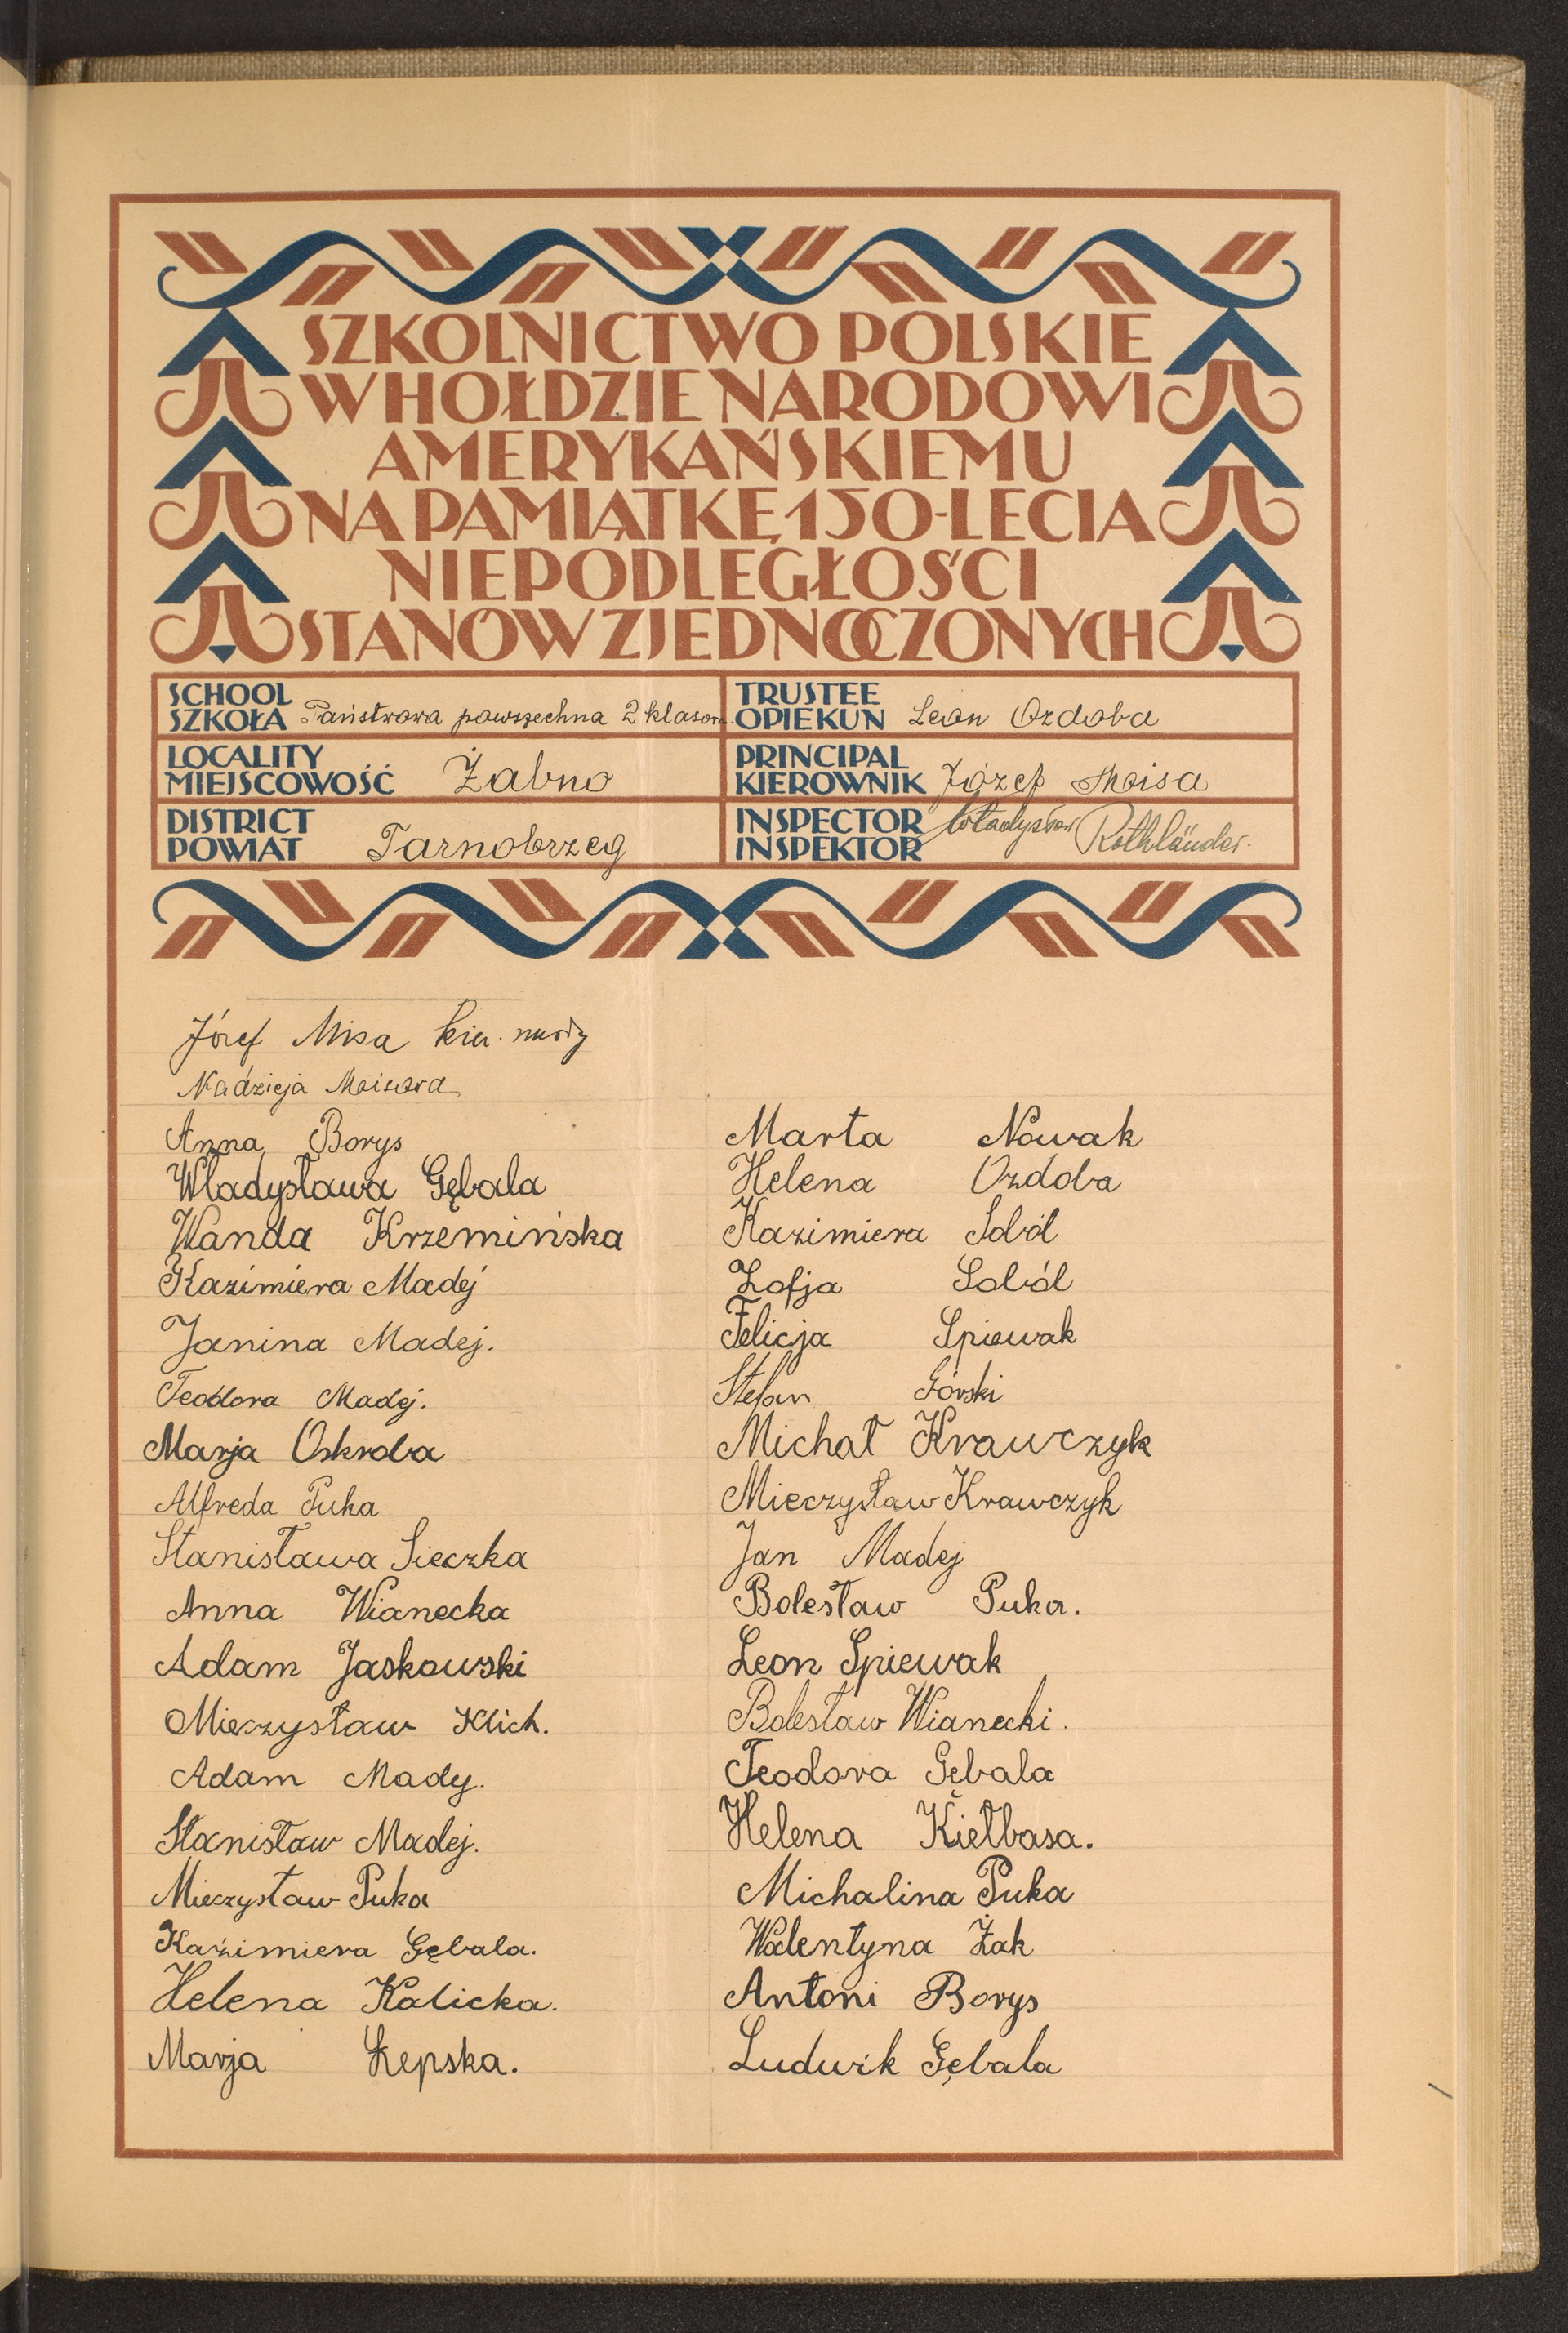 SZKOLNICTWO POLSKIE
W HOŁDZIE NARODOWI
AMERYKAŃSKIEMU
NA PAMIĄTKĘ 150-LECIA
NIEPODLEGŁOŚCI
STANÓW ZJEDNOCZONYCH
SCHOOL
SZKOŁA Państwowa powszechna 2 klasow.
TRUSTEE
OPIEKUN Leon Ozdoba
LOCALITY
MIEJSCOWOŚĆ Żabno
PRINCIPAL
KIEROWNIK Józef Moisa
DISTRICT
POWIAT Tarnobrzeg
INSPECTOR
INSPEKTOR Władysław Rothländer.
Józef Misa kier.
Nadzieja Moisowa
Anna Borys
Władysława Gębala
Wanda Krzemińska
Kazimiera Madej
Janina Madej.
Teodora Madej.
Marja Oskroba
Alfreda Puka
Stanisława Sieczka
Anna Wianecka
Adam Jaskowski
Mieczysław Klich.
Adam Mady.
Stanisław Madej.
Mieczysław Puka
Kazimiera Gębala.
Helena Kalicka.
Marja Łepska.
Marta Nowak
Helena Ozdoba
Kazimiera Soból
Zofja Soból
Felicja Spiewak
Stefan Górski
Michał Krawczyk
Mieczysław Krawczyk
Jan Madej
Bolesław Puka.
Leon Spiewak
Bolesław Wianecki.
Teodora Gębala
Helena Kiełbasa.
Michalina Puka
Walentyna Żak
Antoni Borys
Ludwik Gębala